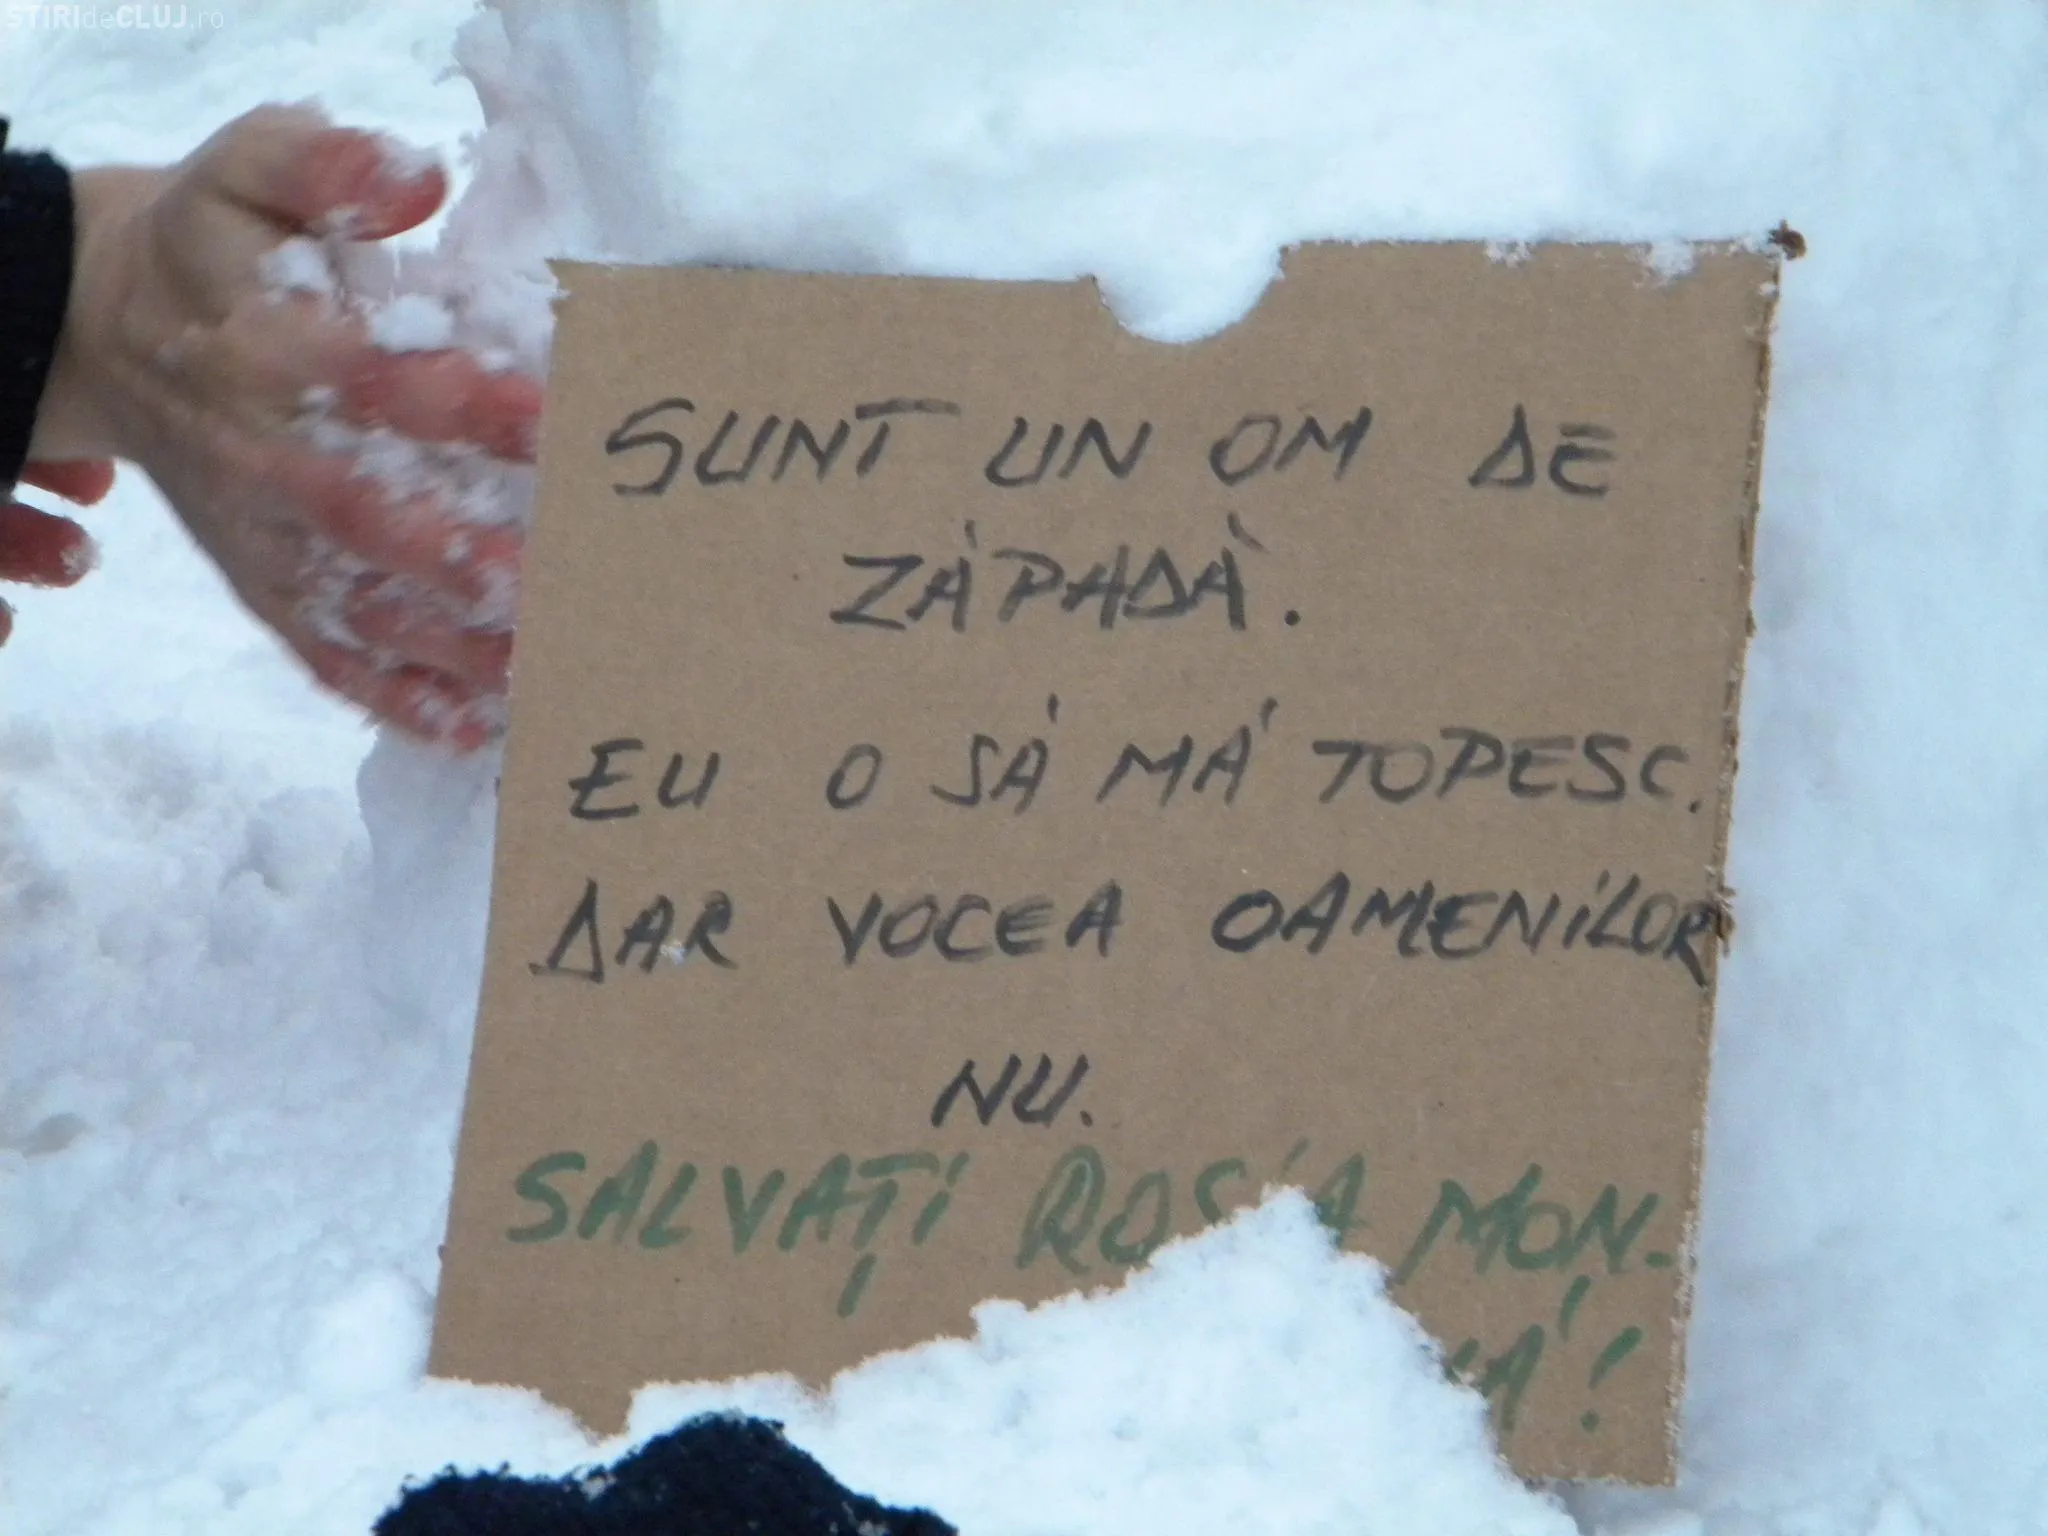 STIRIdeCLUJ.ro
SUNT UN OM DE
ZÁPADÀ.
EU O SÁ MÁ TOPESC.
DAR VOCEA OAMENILOR
NU.
SALVAȚI ROSIA MON-
!